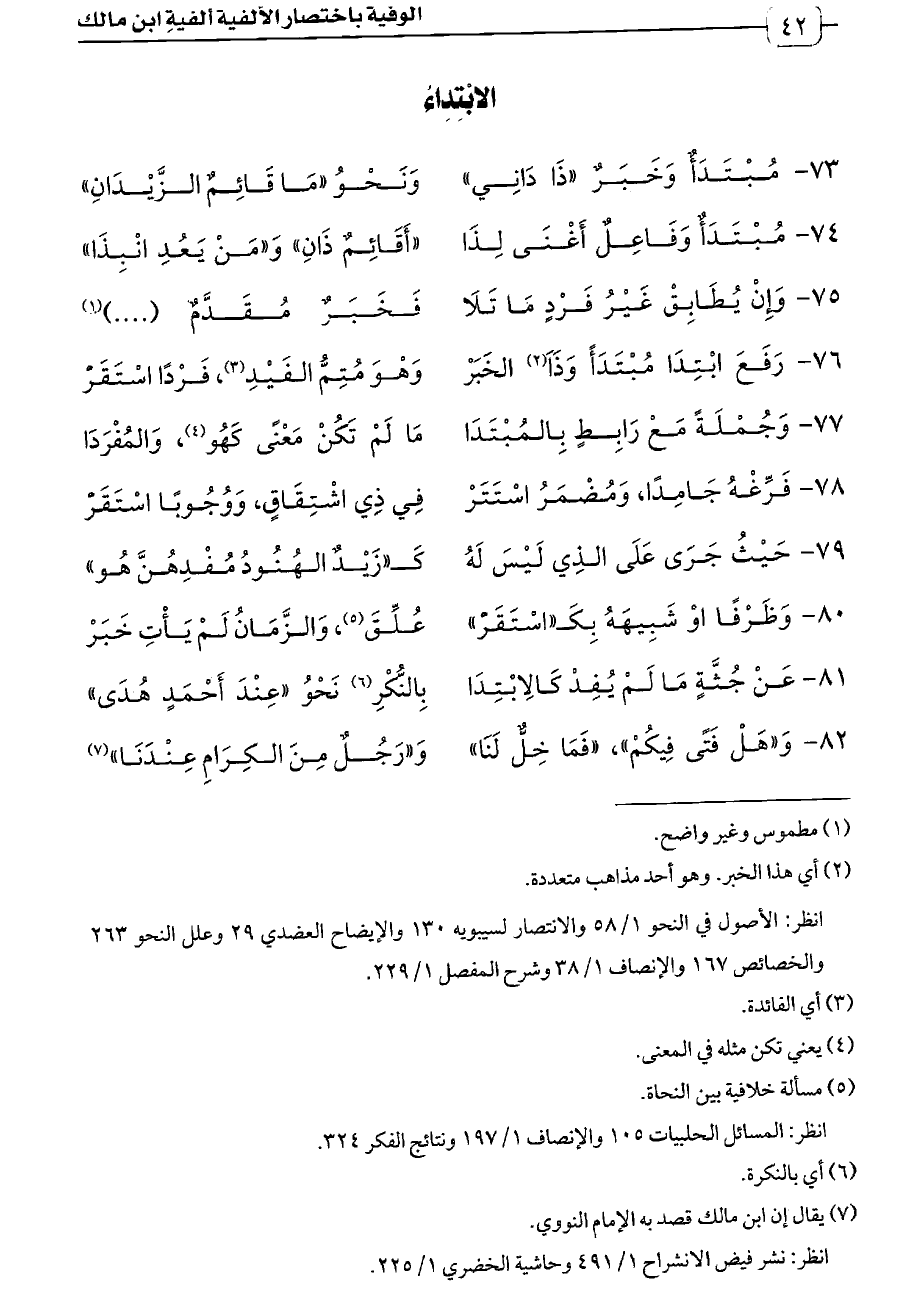 ٤٢ الوفية باختصار الألفية ألفية ابن مالك
الابْتِدَاءُ
٧٣- مُبْتَدَأٌ وَخَبَرٌ «ذَا دَانِي» وَنَحْوُ «مَا قَائِمٌ الزَّيْدَانِ»
٧٤- مُبْتَدَأٌ وَفَاعِلٌ أَغْنَى لِذَا «أَقَائِمٌ ذَانِ» وَ«مَنْ يَعُدِ انْبِذَا»
٧٥- وَإِنْ يُطَابِقْ غَيْرُ فَرْدٍ مَا تَلَا فَخَبَرٌ مُقَدَّمٌ (....)(١)
٧٦- رَفَعَ ابْتِدَا مُبْتَدَأً وَذَا(٢) الخَبَرْ وَهْوَ مُتِمُّ الفَيْدِ(٣)، فَرْدًا اسْتَقَرّْ
٧٧- وَجُمْلَةً مَعْ رَابِطٍ بِالمُبْتَدَا مَا لَمْ تَكُنْ مَعْنًى كَهُو(٤)، وَالمُفْرَدَا
٧٨- فَرِّغْهُ جَامِدًا، وَمُضْمَرُ اسْتَتَرْ فِي ذِي اشْتِقَاقٍ، وَوُجُوبًا اسْتَقَرّْ
٧٩- حَيْثُ جَرَى عَلَى الذِي لَيْسَ لَهُ كَـ«زَيْدٌ الهُنُودُ مُفْدِهُنَّ هُو»
٨٠- وَظَرْفًا اوْ شَبِيهَهُ بِكَـ«اسْتَقَرّْ» عُلِّقَ(٥)، وَالزَّمَانُ لَمْ يَأْتِ خَبَرْ
٨١- عَنْ جُثَّةٍ مَا لَمْ يُفِدْ كَالِابْتِدَا بِالنُّكْرِ(٦) نَحْوُ «عِنْدَ أَحْمَدٍ هُدَى»
٨٢- وَ«هَلْ فَتًى فِيكُمْ»، «فَمَا خِلٌّ لَنَا» وَ«رَجُلٌ مِنَ الكِرَامِ عِنْدَنَا»(٧)
(١) مطموس وغير واضح.
(٢) أي هذا الخبر. وهو أحد مذاهب متعددة.
انظر: الأصول في النحو ١/ ٥٨ والانتصار لسيبويه ١٣٠ والإيضاح العضدي ٢٩ وعلل النحو ٢٦٣
والخصائص ١٦٧ والإنصاف ١/ ٣٨ وشرح المفصل ١/ ٢٢٩.
(٣) أي الفائدة.
(٤) يعني تكن مثله في المعنى.
(٥) مسألة خلافية بين النحاة.
انظر: المسائل الحلبيات ١٠٥ والإنصاف ١/ ١٩٧ ونتائج الفكر ٣٢٤.
(٦) أي بالنكرة.
(٧) يقال إن ابن مالك قصد به الإمام النووي.
انظر: نشر فيض الانشراح ١/ ٤٩١ وحاشية الخضري ١/ ٢٢٥.